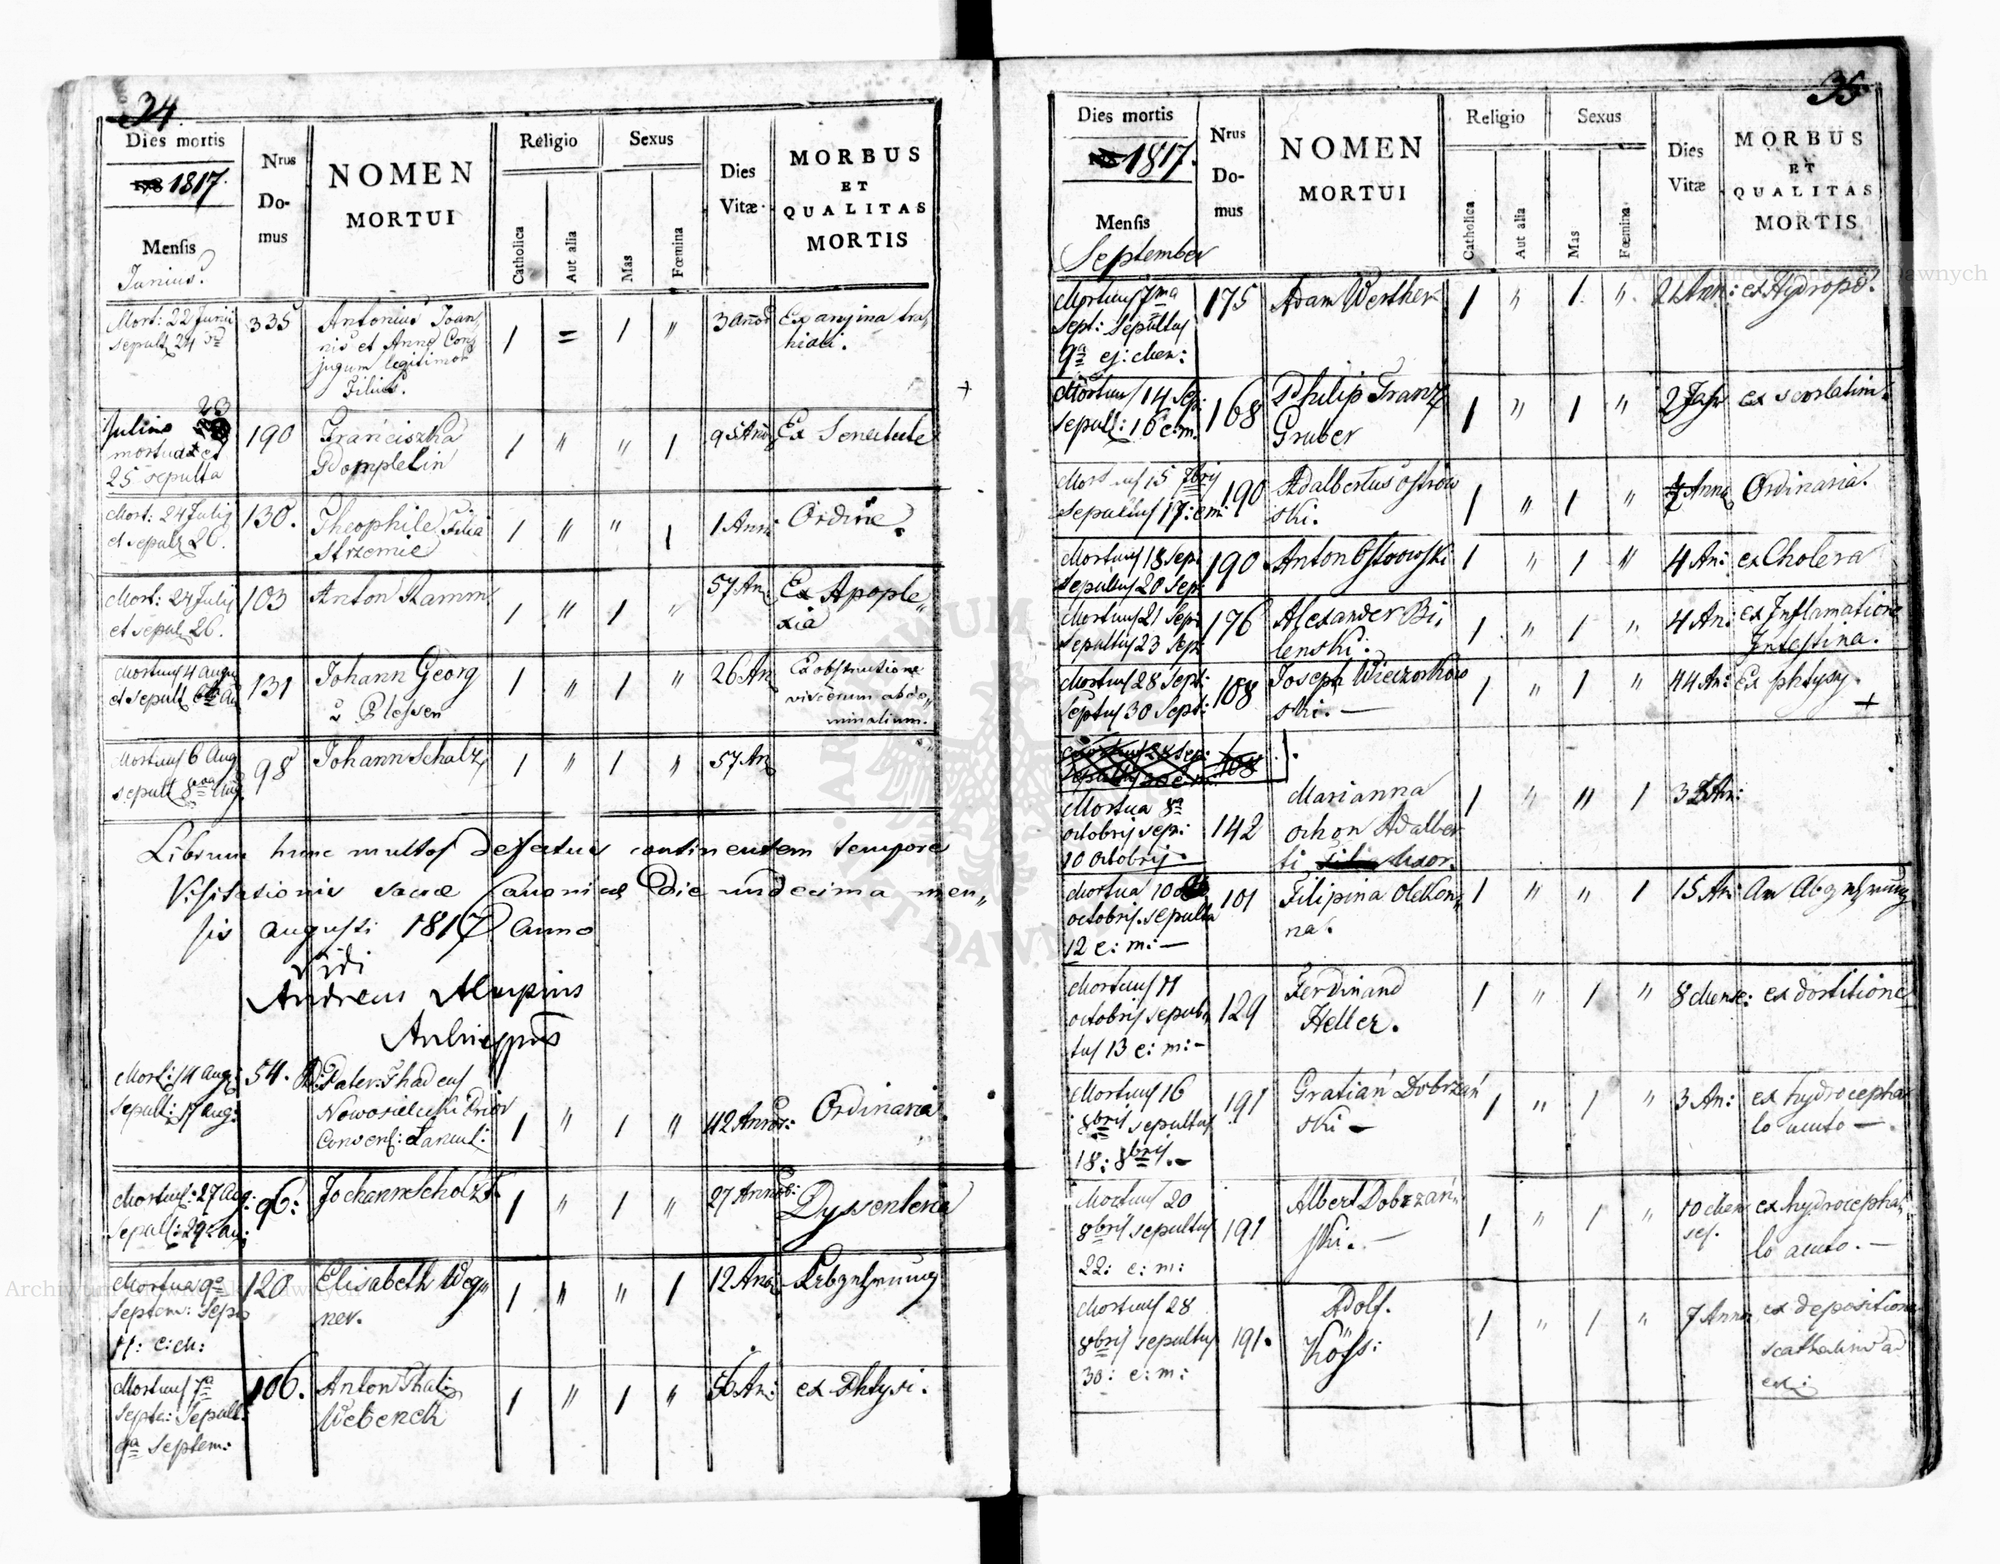 34
Dies mortis
1817.
Mensis
Junius.
Nrus
Do-
mus
NOMEN
MORTUI
Religio
Catholica
Aut alia
Sexus
Mas
Fœmina
Dies
Vitæ
MORBUS
ET
QUALITAS
MORTIS
Mort: 22 Junii
sepult 24
335
Antonius Joan,
nis et Anna Con,
jugum legitimor
Filius.
1 = 1 "
3 Annor
Ex angina tra,
Julius 23
mortua et
25 sepulta
190
Franciszka
1 " " 1
95 Anno
Ex Senectute
Mort: 24 July
et sepult 26.
130.
Theophile Filia
Strzemie
1 " " 1
1 Ann:
Ordine.
Mort: 24 July
et sepul 26.
103
Anton Ramm
1 " 1 "
57 An
Ex Apople,,
xia
Mortuus 4 Augu
et sepult
131
Johann Georg
v Plessen
1 " 1 "
26 An
Ex obstructione
viscerum abdo,,
minalium.
Mortuus 6 Aug
sepult 8va Aug
98
Johann Scholz
1 " 1 "
57 An
Librum hunc multos defectus continentem tempore
Visitationis sacræ Canonicæ Die undecima men,,
sis augusti 1817 anno
Vidi
Andreas Alupius
Mort: 14 Aug:
Sepult: 17 aug:
54.
Pater Thadeus
Nowosielecki Prior
Convent:
1 " 1 "
42 Annor:
Ordinaria.
Mortuus: 27 Aug:
Sepult: 29 Au:
96:
Johann Scholz
1 " 1 "
27 Annor:
Dyssenteria
Mortua 9a
Septem: Sep
11: e: m:
120
Elisabeth Weg,,
ner.
1 " " 1
12 Ano
Abzehrung
Mortuus 7a
Septe: Sepult:
9a Septem:
106.
Anton
Webenck
1 " 1 "
56 An:
ex Phtysi.
35
Dies mortis
1817.
Mensis
September
Nrus
Do-
mus
NOMEN
MORTUI
Religio
Catholica
Aut alia
Sexus
Mas
Fœmina
Dies
Vitæ
MORBUS
ET
QUALITAS
MORTIS
Mortuus 7ma
Sept: Sepultus
9a ej: Men:
175
Adam Werther
1 " 1 "
2 Ann:
ex Hydropo.
Mortuus 14 Sep:
sepult: 16 e: m.
168
Philip Franz
Gruber
1 " 1 "
2 Jahr
ex scorlatim
Mortuus 15 7bris
Sepultus 17: e m:
190
Adalbertus Ostrow
ski.
1 " 1 "
Anno
Ordinaria.
Mortuus 18 Sep:
Sepultus 20 Sep:
190
Anton Ostrowski
1 " 1 "
4 An:
ex Cholera
Mortuus 21 Sep:
Sepultus 23 Sep:
176
Alexander Bi,
lenski:
1 " 1 "
4 An:
ex Inflamatione
Intestina.
Mortuus 28 Sept:
Septus 30 Sept:
108
Joseph Wieczorkow
ski. —
1 " 1 "
44 An:
Ex phtysy.
108
Mortua 8a
octobris sep:
10 Octobris
142
Marianna
ochon Adalber
ti uxor.
1 " " 1
3 An:
Mortua 10
octobris sepulta
12 e: m: —
101
Filipina Olekon,,
na.
1 " " 1
15 An:
An Abzehrung
Mortuus 11
octobris sepul,
tus 13 e: m: -
129
Ferdinand
Heller.
1 " 1 "
8 Mense:
ex dostitione
Mortuus 16
8bris sepultus
18: 8bris. -
191
Gratian Dobrzań
ski —
1 " 1 "
3 An:
ex hydrocepha
lo acuto —
Mortuus 20
8bris sepultus
22: e: m:
191
Albert Dobrzań,,
ski. —
1 " 1 "
10 Men
ses.
ex hydrocepha,
lo acuto. —
Mortuus 28
8bris sepultus
30: e: m:
191.
Adolf.
Köss:
1 " 1 "
7 Anno
ex depositione
ARCHIWUM
AKT DAWNYCH